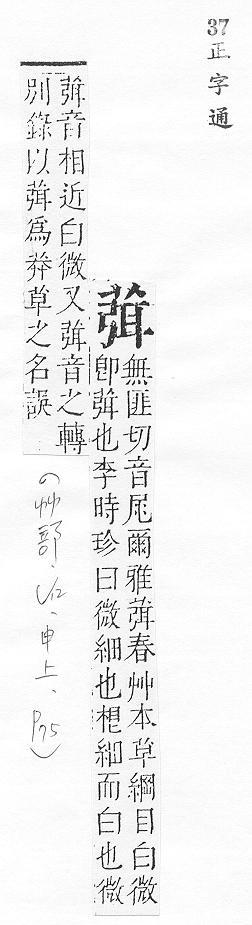 37
正字通
葞
無匪切音尾爾雅葞春艸本草綱目白微
卽葞也李時珍曰微細也根細而白也微
葞音相近白微又葞音之轉
別錄以葞爲莽草之名誤
(艸部、V12、申上、P75)